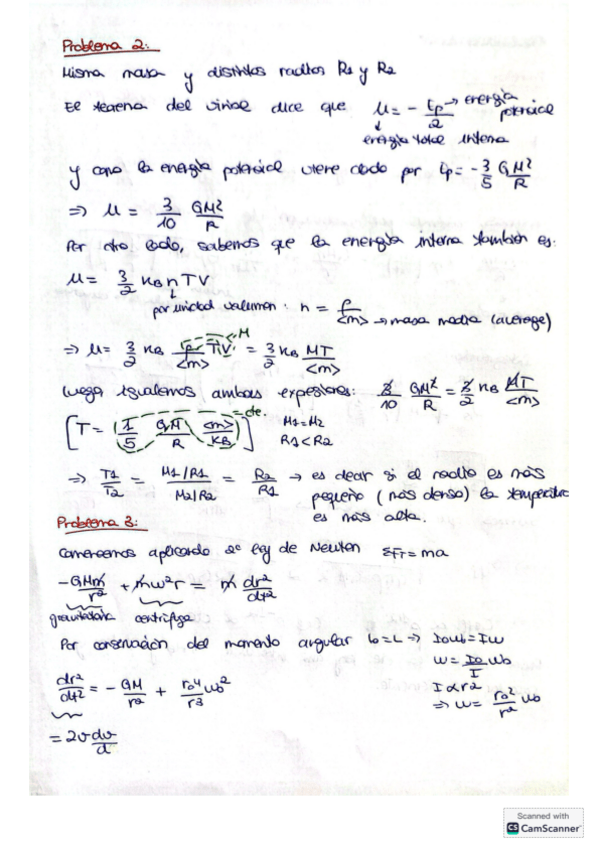 Problema 2:
Misma masa y distintos radios R1 y R2
El teorema del virial dice que U = - Ep/2 → energía potencial
↓ energía total interna
y como la energía potencial viene dada por Ep = -3/5 GM²/R
⇒ U = 3/10 GM²/R
Por otro lado, sabemos que la energía interna también es:
U = 3/2 KB n T V
↓ por unidad volumen: n = ρ/<m> → masa media (average)
⇒ U = 3/2 KB ρTV/<m> = 3/2 KB MT/<m>
→ M
Luego igualamos ambas expresiones: 3/10 GM²/R = 3/2 KB MT/<m>
[T = 1/5 GM/R <m>/KB] = cte. M1 = M2
R1 < R2
⇒ T1/T2 = M1/R1 / M2/R2 = R2/R1 → es decir si el radio es más
pequeño (más denso) la temperatura
es más alta.
Problema 3:
Comencemos aplicando 2ª ley de Newton ΣFT = ma
-GMm/r² + mw²r = m dr²/dt²
gravitatoria centrífuga
Por conservación del momento angular L0 = L → I0w0 = Iw
w = I0/I w0
dr²/dt² = - GM/r² + r0⁴/r³ w0²
I ∝ r²
⇒ w = r0²/r² w0
= 2v dv/d
Scanned with
CS CamScanner